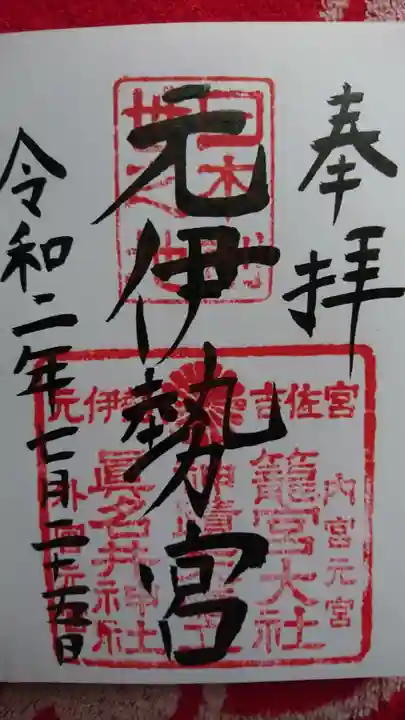 奉拝
元伊勢宮
令和二年七月二十五日
吉佐宮
元伊勢
内宮元宮
籠宮大社
眞名井神社